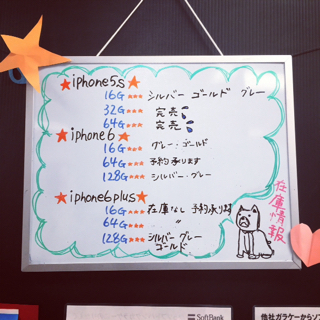 ★iphone5s★
16G★★★ シルバー ゴールド グレー
32G★★★ 完売
64G★★★ 完売
★iphone6★
16G★★★ グレー・ゴールド
64G★★★ 予約承ります
128G★★★ シルバー・グレー
★iphone6plus★
16G★★★ 在庫なし 予約承ります
64G★★★ 〃
128G★★★ シルバー グレー
ゴールド
在庫情報
SoftBank
他社ガラケーからソフ